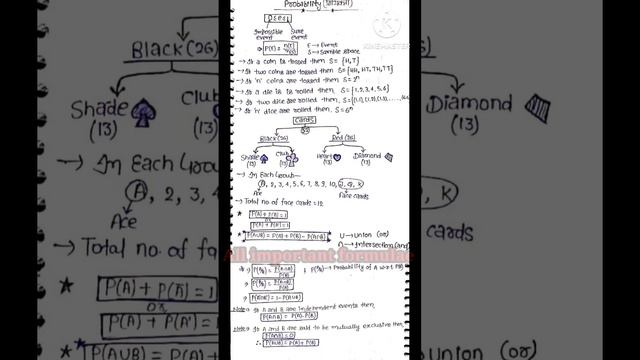 Probability (प्रायिकता)
0 ≤ P(E) ≤ 1
Impossible event
Sure event
P(E) = n(E)/n(S)
E → Event
S → Sample space
→ If a coin is tossed then S = {H,T}
→ If two coins are tossed then S = {HH, HT, TH, TT}
→ If 'n' coins are tossed then S = 2ⁿ
→ If a die is rolled then, S = {1,2,3,4,5,6}
→ If two dice are rolled then, S =
→ If 'n' dice are rolled then, S = 6ⁿ
Cards
Black (26)
Red (26)
Shade (13)
Club (13)
Heart (13)
Diamond (13)
→ In Each Group-
A, 2, 3, 4, 5, 6, 7, 8, 9, 10, J, Q, K
Ace
Face cards
→ Total number of face cards = 12
P(A) + P(Ā) = 1
OR
P(A) + P(A') = 1
P(A∪B) = P(A) + P(B) - P(A∩B)
U → Union (or)
∩ → Intersection (and)
All important formulae
P(A/B) = P(A∩B)/P(B)
P(A/B) → Probability of A w.r.t P(B)
Note → If A and B are independent events then
P(A∩B) = P(A).P(B)
Note → If A and B are said to be mutually exclusive then
P(A∩B) = 0
∴ P(A∪B) = P(A) + P(B)
Black (26)
Shade (13)
Club
→ In Each Group
A, 2, 3,
Ace
→ Total no. of face
P(A) + P(Ā) = 1
OR
P(A) + P(A') = 1
P(A∪B) = P(A)
KINEMASTER
Diamond (13)
K
cards
Union (or)